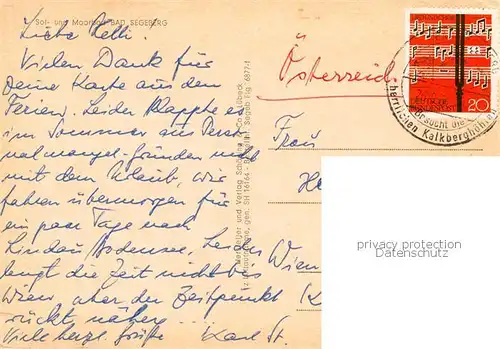 Sol- und Moorbad BAD SEGEBERG
Liebe Nelli!
Vielen Dank für
Deine Karte aus den
Ferien. Leider klappte es
im Sommer aus Perso
nalmangel-Gründen nicht
mit dem Urlaub, wir
fahren übermorgen für
ein paar Tage nach
Lindau/Bodensee, leider
langt die Zeit nicht bis
Wien, aber der Zeitpunkt
rückt näher...
Viele herzl. Grüße Karl St.
Österreich
Frau
Wien
DEUTSCHE BUNDESPOST
20
Besucht die
herrlichen Kalkberghöhlen
privacy protection
Datenschutz